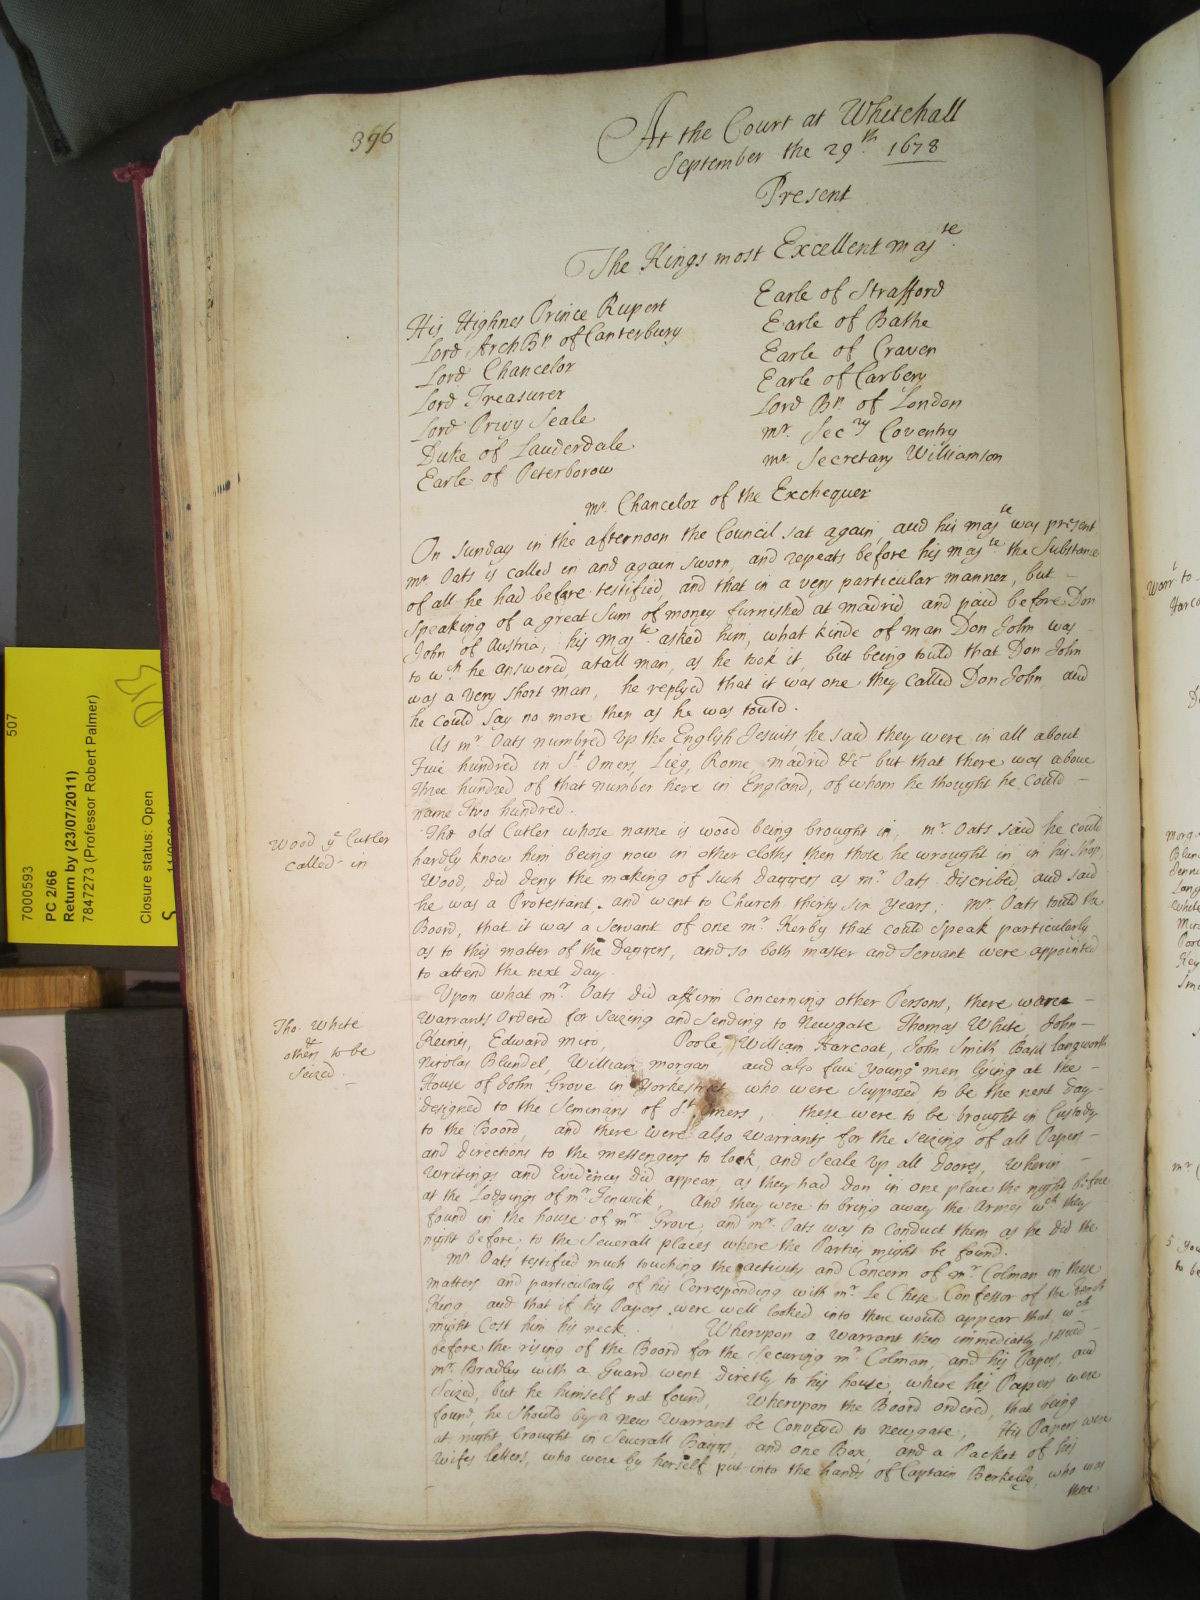 396
At the Court at Whitehall
September the 29th. 1678
Present
The Kings most Excellent majte.
His Highnes Prince Rupert
Lord ArchBp of Canterbury
Lord Chancelor
Lord Treasurer
Lord Privy Seale
Duke of Lauderdale
Earle of Peterborow
Earle of Strafford
Earle of Bathe
Earle of Craven
Earle of Carbery
Lord Bp. of London
mr. Secry Coventry
mr. Secretary Williamson
mr. Chancelor of the Exchequer
On Sunday in the afternoon the Council sat again, and his majte was present
mr. Oats is called in and again sworn, and repeats before his majte the Substance
of all he had before testified, and that in a very particular manner, but -
speaking of a great Sum of money furnished at madrid, and paid before Don
John of Austria, his majte asked him, what kinde of man Don John was -
to wch he answered, a tall man, as he took it, but being tould that Don John
was a very short man, he replyed that it was one they called Don John, and
he could say no more then as he was tould.
As mr. Oats numbred up the English Jesuits he said they were in all about
Five hundred in St Omers, Lieg, Rome, madrid &c but that there was above
Three hundred of that number here in England, of whom he thought he could -
name Two hundred.
Wood ye Cutler
called in
The old Cutler whose name is wood being brought in, mr. Oats said he could
hardly know him being now in other cloths then those he wrought in, in his shop,
Wood, did deny the making of such daggers as mr. Oats discribed, and said
he was a Protestant, and went to Church thirty six years; mr. Oats tould the
Board, that it was a Servant of one mr. Kerby that could speak particularly
as to this matter of the Daggers, and so both master and Servant were appointed
to attend the next day.
Tho. White
&
others to be
seized
Upon what mr. Oats did affirm Concerning other Persons, there were -
warrants Ordered for seizing and sending to Newgate Thomas White, John -
Keines, Edward mico, Poole William Harcoat, John Smith Basil Langworth
Nicolas Blundel, William morgan and also five young men lying at the -
House of John Grove in Yorkestreet who were supposed to be the next day -
designed to the Seminaris of St Omers, these were to be brought in Custody
to the Board, and there were also warrants for the seizing of all Papers -
and directions to the messengers to lock, and seale up all doores, wherin -
writings and Evidences did appear, as they had don in one place the night before
at the Lodgings of mr Fenwick, And they were to bring away the Armes wch they
found in the house of mr Grove, and mr. Oats was to Conduct them as he did the
night before, to the Severall places where the Parties might be found.
mr. Oats testified much touching the activity and Concern of mr. Colman in these
matters and particularly of his Corresponding with mr. Le Chese Confessor of the French
King, and that if his Papers were well looked into there would appear that wch
might Cost him his neck. Wherupon a warrant then immediatly issued -
before the rising of the Board for the securing mr. Colman, and his Papers, and
mr. Bradley with a Guard went directly to his house, where his Papers were
Seized, but he himself not found, Wherupon the Board ordered, that being
found, he should by a new Warrant be Conveyed to newgate, His Papers were
at night brought in Severall Baggs, and one Box, and a Packet of his
Wifes letters, who were by herself put into the hands of Captain Berkeley, who was
there
507
7000593
PC 2/66
Return by (23/07/2011)
7847273 (Professor Robert Palmer)
Closure status: Open
Warrt to
Harco
Blun
Lang
White
Poo
Key
mr
5 You
to be